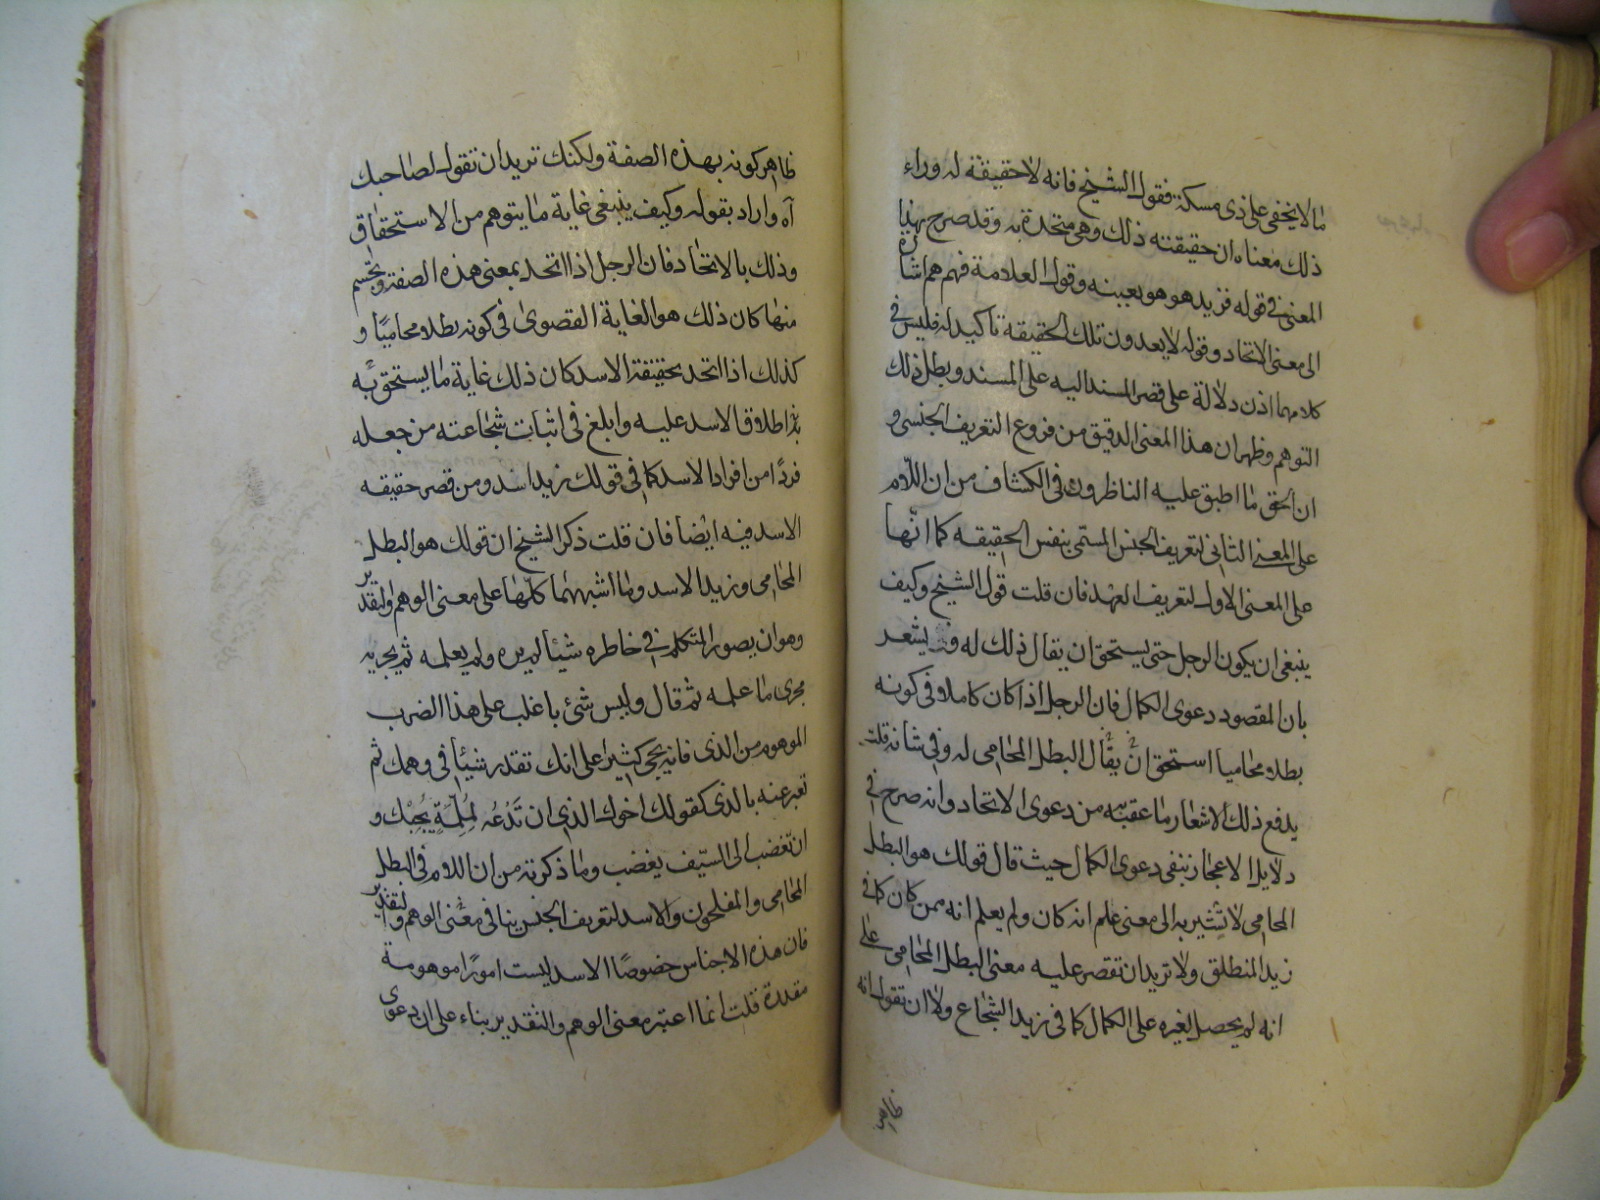 ما لا يخفى على ذى مسكة فقول الشيخ فانه لا حقيقة له وراء
ذلك معناه ان حقيقته ذلك وهى متحدة به وقد صرح بهذا
المعنى فى قوله فزيد هو هو بعينه وقول العلامة فهم هم اشارة
الى معنى الاتحاد وقوله لا يعدون تلك الحقيقة تاكيد له فليس فى
كلامهما اذن دلالة على قصر المسند اليه على المسند وبطل ذلك
التوهم وظهر ان هذا المعنى الدقيق من فروع التعريف الجنسى و
ان الحق ما اطبق عليه الناظرون فى الكشاف من ان اللام
على المعنى الثانى لتعريف الجنس المسمى بنفس الحقيقه كما انها
على المعنى الاول لتعريف العهد فان قلت قول الشيخ وكيف
ينبغى ان يكون الرجل حتى يستحق ان يقال ذلك له وفيه يشعر
بان المقصود دعوى الكمال فان الرجل اذا كان كاملا فى كونه
بطلا محاميا استحق ان يقال البطل المحامى له وفى شانه قلت
يدفع ذلك الاشعار ما عقبه به من دعوى الاتحاد وانه صرح فى
دلايل الاعجاز بنفى دعوى الكمال حيث قال قولك هو البطل
المحامى لا تشير به الى معنى علم انه كان ولم يعلم انه ممن كان كما فى
زيد المنطلق ولا تريد ان تقصر عليه معنى البطل المحامى على
انه لم يحصل لغيره على الكمال كما فى زيد الشجاع ولا ان تقول انه
ظاهر
ظاهر كونه بهذه الصفة ولكنك تريد ان تقول لصاحبك
آه واراد بقوله وكيف ينبغى غاية ما يتوهم من الاستحقاق
وذلك بالاتحاد فان الرجل اذا اتحد بمعنى هذه الصفة وتجسم
منها كان ذلك هو الغاية القصوى فى كونه بطلا محاميا و
كذلك اذا اتحد بحقيقة الاسد كان ذلك غاية ما يستحق به
اطلاق الاسد عليه وابلغ فى اثبات شجاعته من جعله
فردًا من افراد الاسد كما فى قولك زيد اسد ومن قصر حقيقه
الاسد فيه ايضا فان قلت ذكر الشيخ ان قولك هو البطل
المحامى وزيد الاسد وما اشبههما كلها على معنى الوهم والتقدير
وهو ان يصور المتكلم فى خاطره شيئا لم يره ولم يعلمه ثم يجريه
مجرى ما علمه ثم قال وليس شئ باغلب على هذا الضرب
الموهوم من الذى فانه يجئ كثيرا على انك تقدر شيئا فى وهمك ثم
تعبر عنه بالذى كقولك اخوك الذى ان تَدْعُه لِمُلِمَّةٍ يُجِبْك و
ان تغضب الى السيف يغضب وما ذكرته من ان اللام فى البطل
المحامى والمفلحون والاسد لتعريف الجنس ينافى معنى الوهم والتقدير
فان هذه الاجناس خصوصًا الاسد ليست امورًا موهومة
مقدرة قلت انما اعتبر معنى الوهم والتقدير بناء على ان دعوى